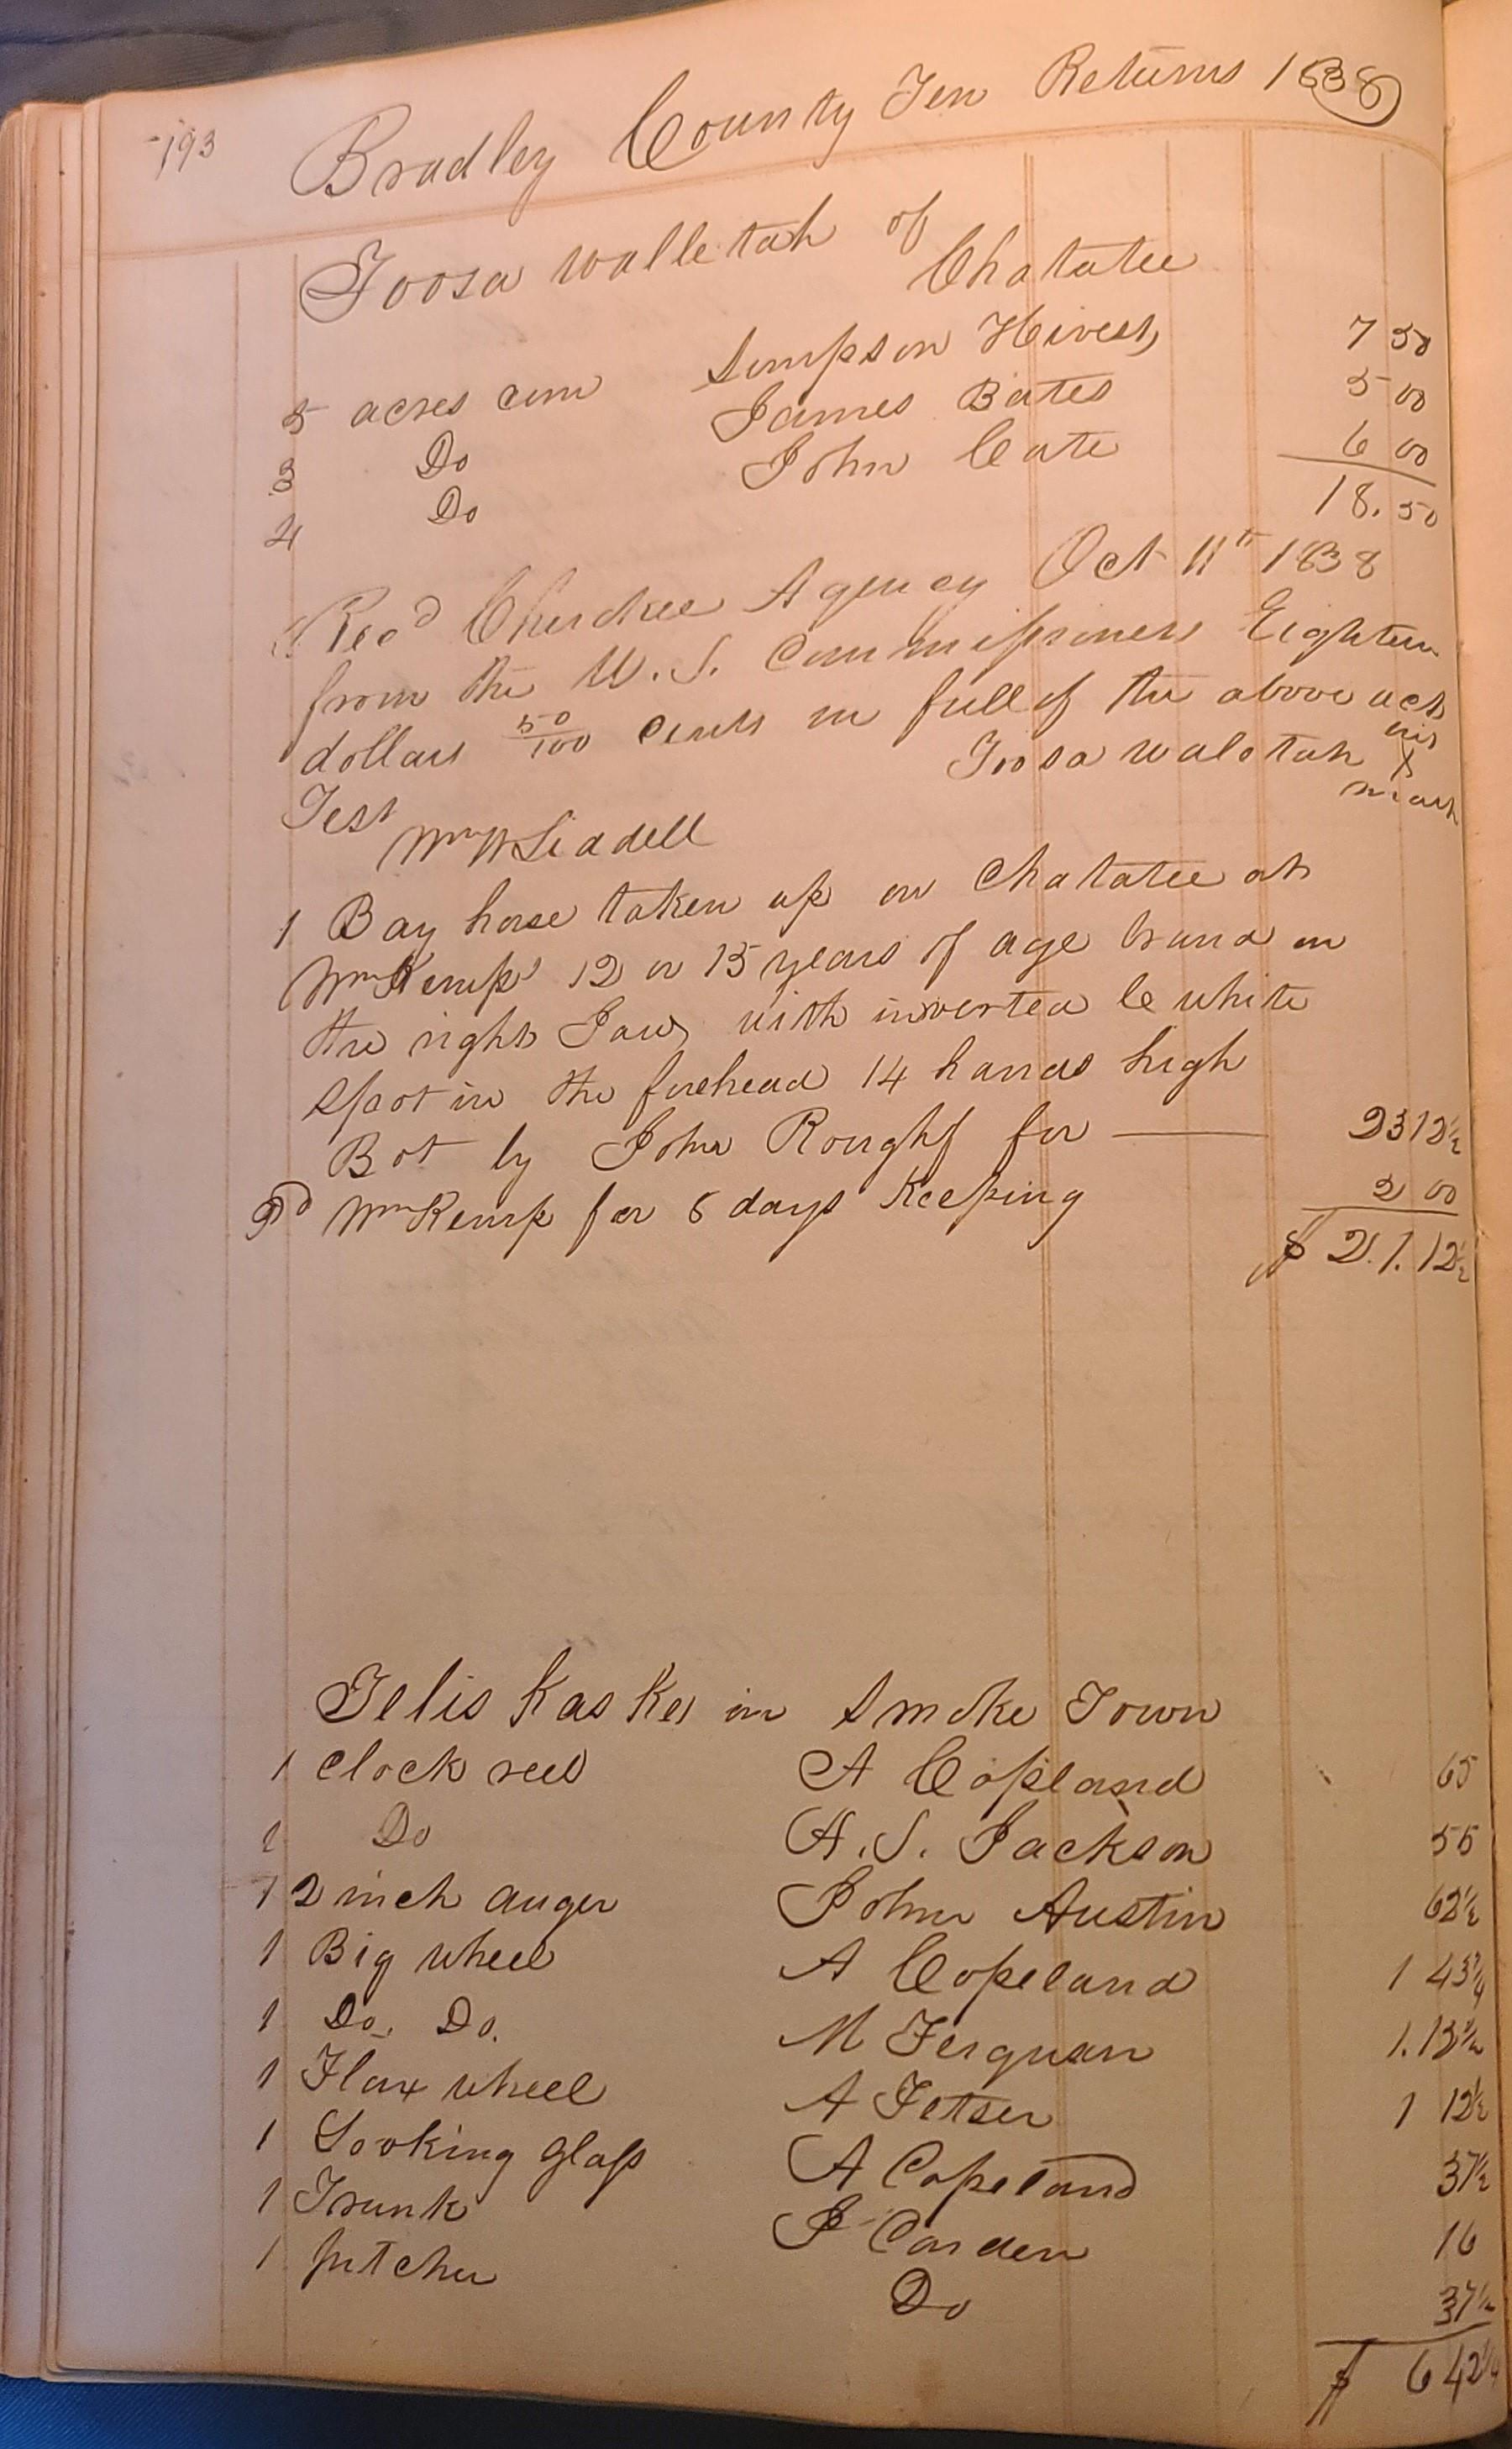 193
Bradley County Ten Returns 1838
Toosa walletah of
Chatatee
5 acres corn Simpson 7 50
3 Do James Bates 5 00
4 Do John Cate 6 00
18.50
Recd Cherokee Agency Oct 11th 1838
from the U.S. Commissioners Eighteen
dollars 50/100 cents in full of the above act
Toosa walotah his
X
mark
Test
Wm W Liddell
1 Bay horse taken up on Chatatee at
Wm Kemps 12 or 15 years of age brand on
the right Jaw with inverted C white
spot in the forehead 14 hands high
Bot by John Rought for 23 12½
Pd Wm Kemp for 8 days Keeping 2 00
$ 21.12½
Telis kas Kee in Smoke Town
1 Clock reel A Copland 65
1 Do A. S. Jackson 55
1 2 inch auger John Austin 62½
1 Big wheel A Copeland 1 43¾
1 Do. Do. M Ferguson 1.13½
1 Flax wheel A Fetser 1 12½
1 Looking Glass A Copeland 37½
1 Trunk J Carden 16
1 pitcher Do 37½
$ 6 42¼